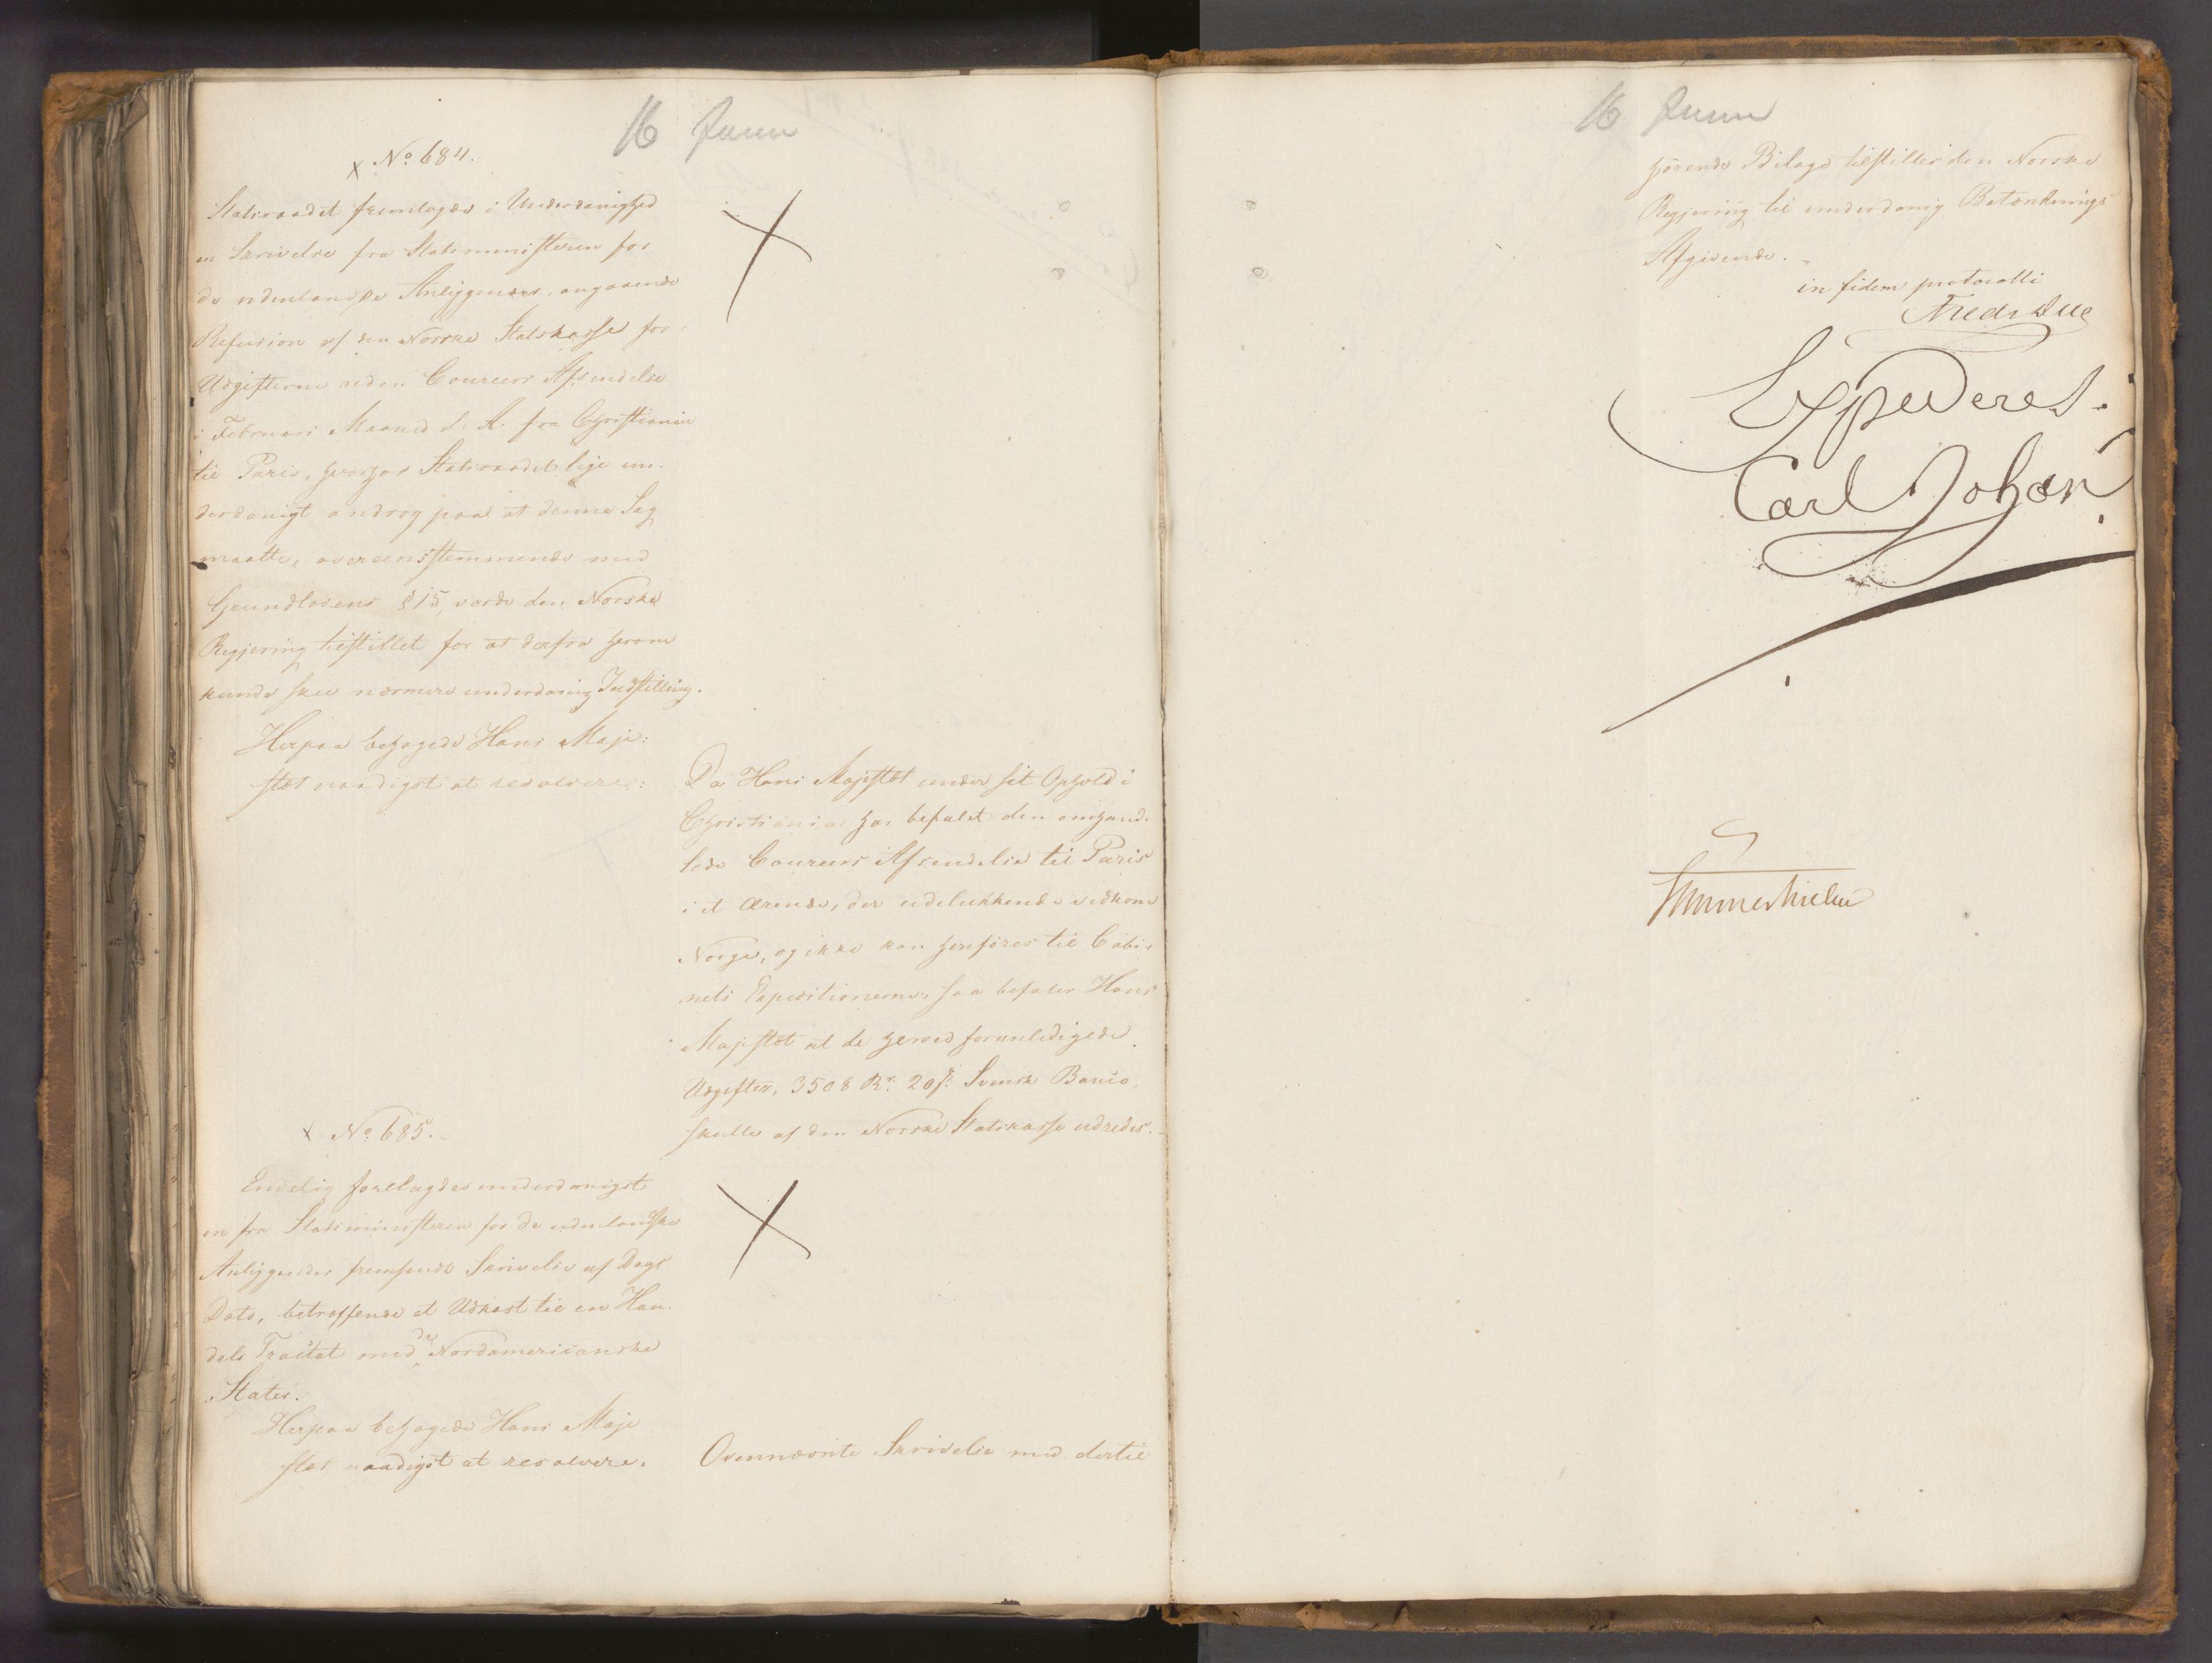 16 Juni
x No 684.
Statsraadet fremlagde i Underdanighed
en Skrivelse fra Statsministeren for
de udenlandske Anliggender, angaaende
Refusion af den Norske Statskasse for
Udgifterne ved en Coureers Afsendelse
i Februari Maaned d: A: fra Christiania
til Paris, hvorhos Statsraadet lige un-
derdanigt androg paa at denne Sag
maatte, overeensstemmende med
Grundlovens § 15, vorde den Norske
Regjering tilstillet for at derfra herom
kunde skee nærmere underdanig Indstilling.
Herpaa behagede Hans Maje:
stæt naadigst at resolvere:
Da Hans Majestæt under sit Ophold i
Christiania har befalet den omhand-
lede Coureers Afsendelse til Paris
i et Ærende, der udelukkende vedkom
Norge, og ikke kan henføres til Cabi-
nets Expeditionerne, saa befaler Hans
Majestæt at de herved foranledigede
Udgifter, 3508 Rr. 20 s. Svensk Banco,
skulle af den Norske Statskasse udredes.
x No 685.
Endelig forelagdes underdanigst
en fra Statsministeren for de udenlandske
Anliggender fremsendt Skrivelse af Dags
Dato, betreffende et Udkast til en Han-
dels Tractat med de Nordamericanske
Stater.
Herpaa behagede Hans Maje
stæt naadigst at resolvere.
Ovennævnte Skrivelse med dertil
16 Juni
hørende Bilage tilstilles den Norske
Regjering til underdanig Betænknings
Afgivende.
in fidem protocolli
Fredr Due
Expederes.
Carl Johan